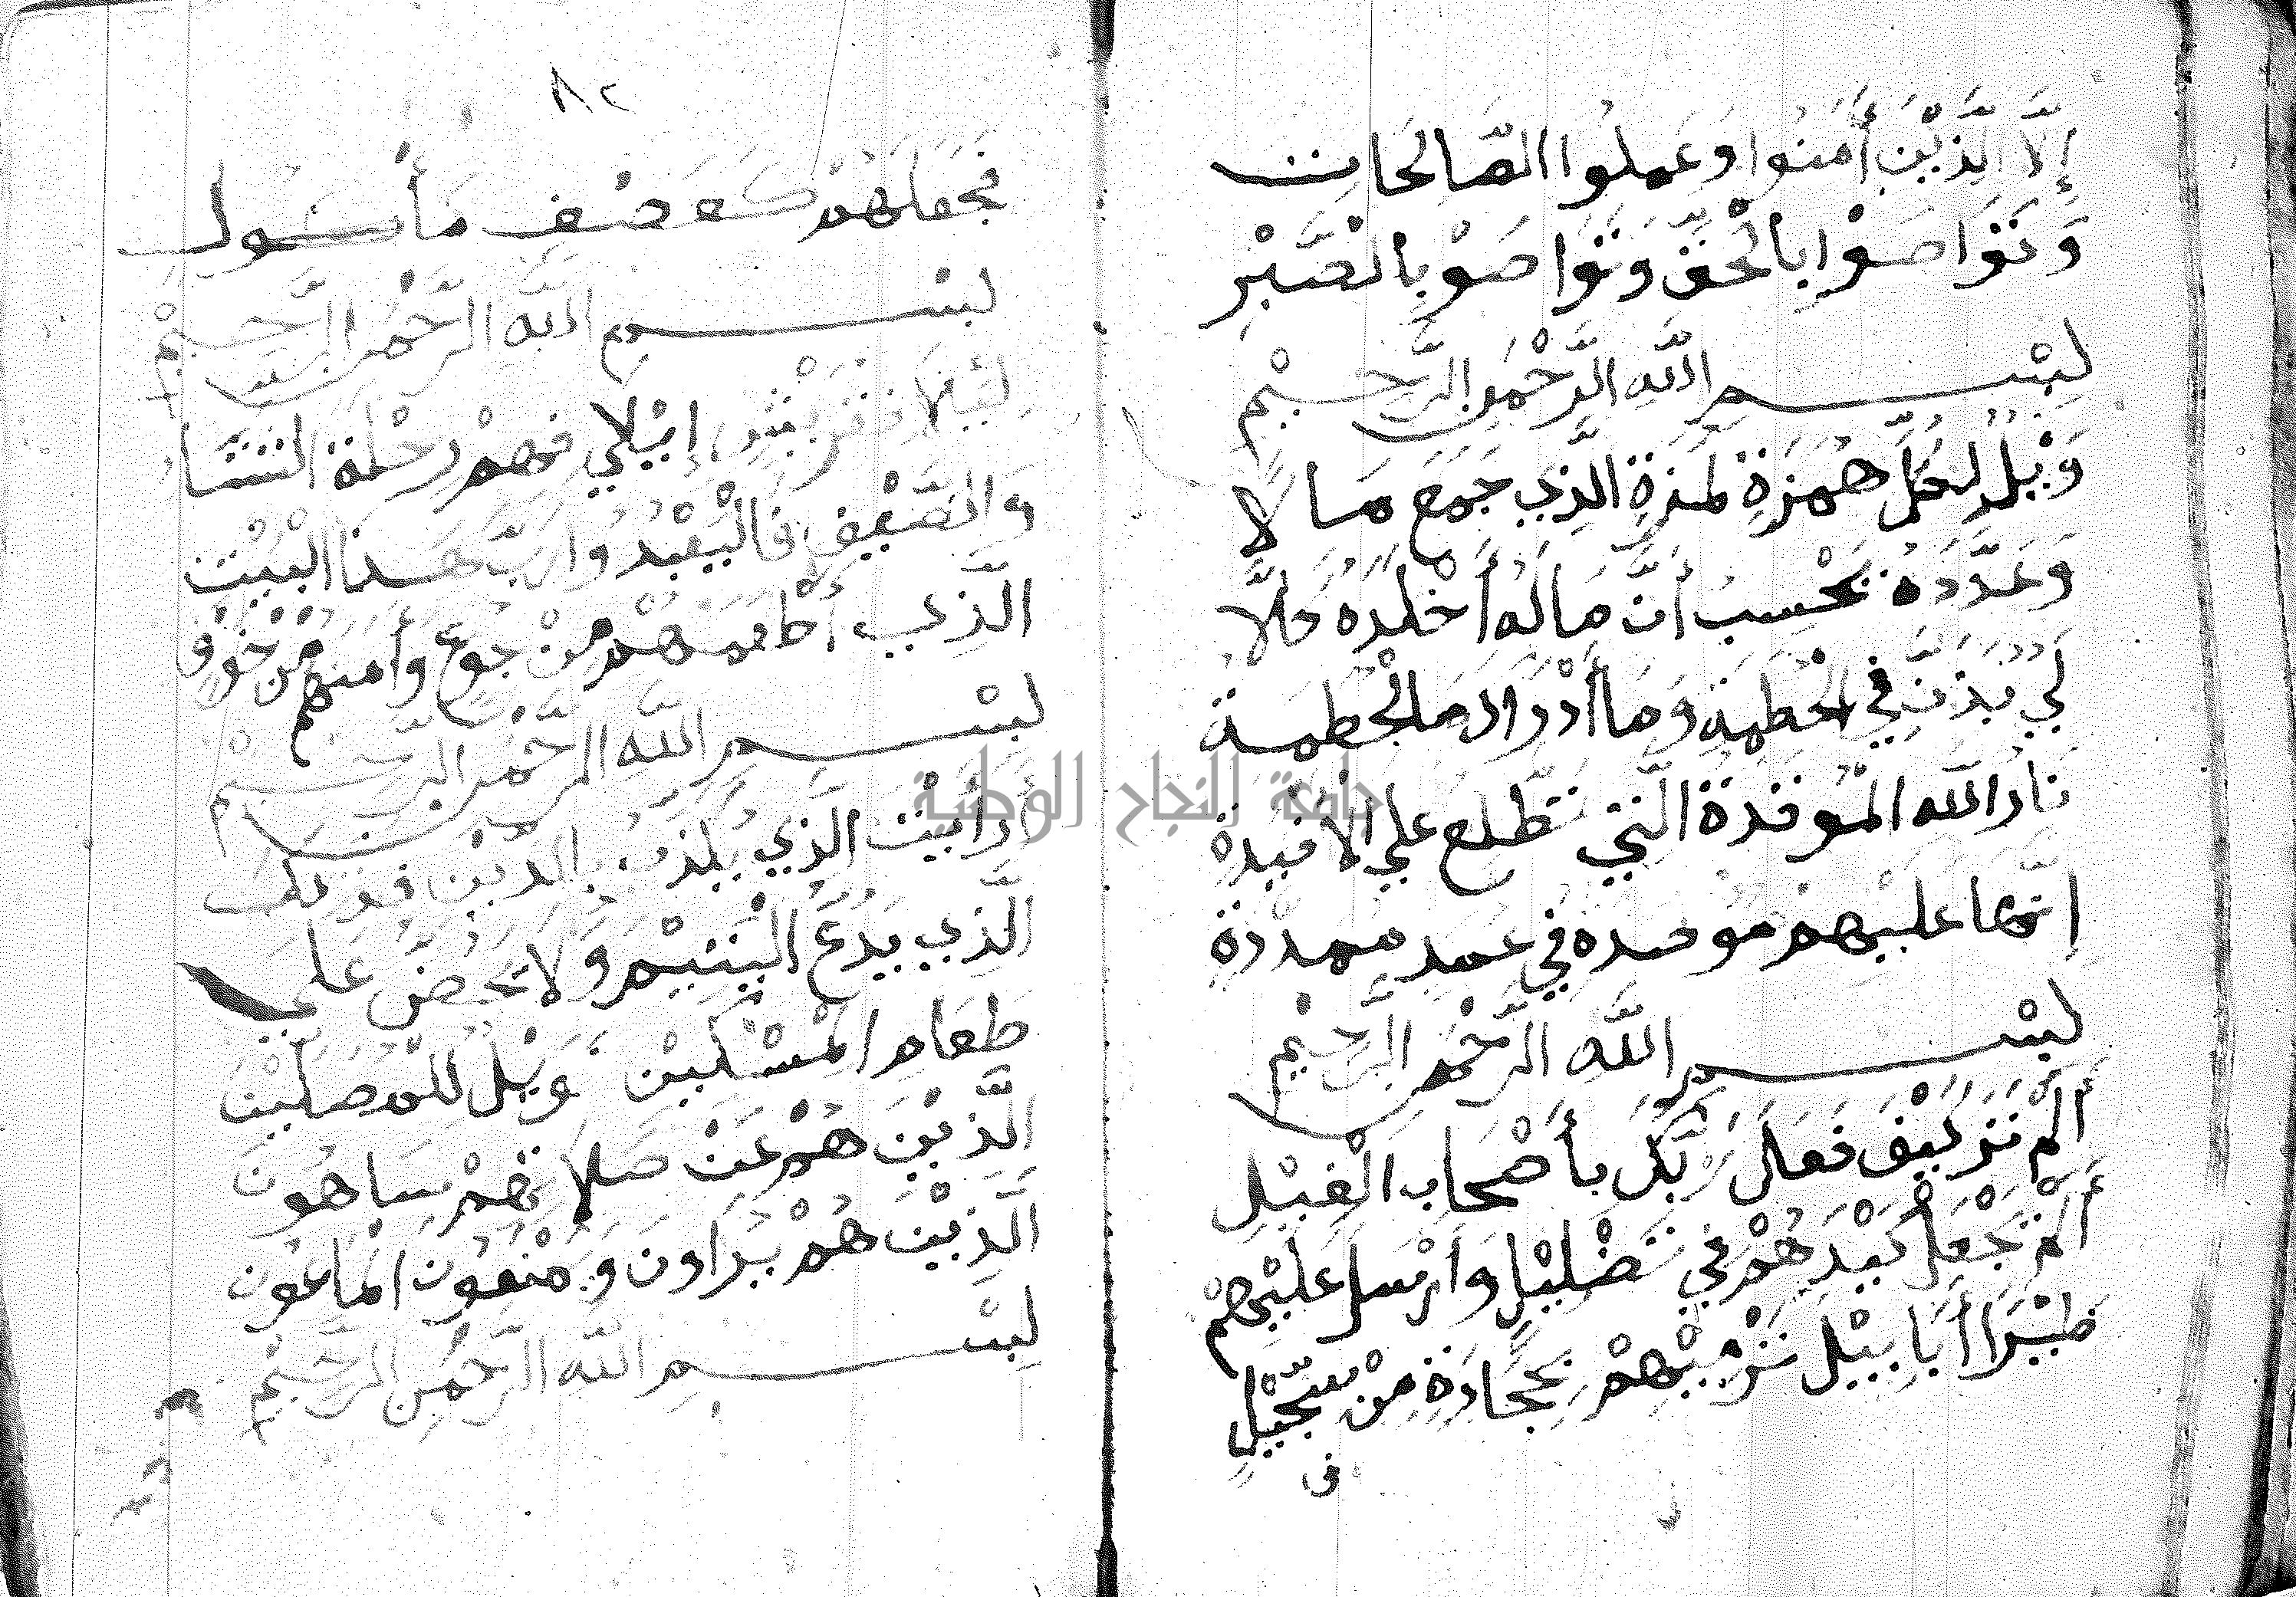 إِلَّا الَّذِيْنَ أَمَنُوا وَعَمِلُوا الصَّالِحَاتِ
وَتَوَاصَوْا بِالْحَقِّ وَتَوَاصَوْ بِالصَّبْرِ
بِسْمِ اللَّهِ الرَّحْمٰنِ الرَّحِيْمِ
وَيْلٌ لِكُلِّ هُمَزَةٍ لمزةٍ الَّذِي جَمَعَ مَالًا
وَعَدَّدَهُ يَحْسِبُ أَنَّ مَالَهُ أَخْلَدَهُ كَلَّا
لَيُنْبَذَنَّ فِي الحُطَمَةِ وَمَا أَدْرَاكَ مَا الْحُطَمَة
نَارُ اللَّه الْمُوقَدَة الَّتِي تَطَّلِعُ عَلي الافئِدَةِ
اِنَّهَا عَلَيْهِم مُوصَدَه فِي عَمَدٍ ممدَّدَةٍ
بِسْمِ اللَّهِ الرَّحْمٰنِ الرَّحِيْمِ
أَلَمْ تَرَ كَيْفَ فَعَلَ رَبُّكَ بِأَصْحَابِ الْفِيْلِ
أَلَمْ يَجْعَلْ كَيْدَهُمْ فِي تَضْلِيْلٍ وَأَرْسَلَ عَلَيْهِمْ
طَيْرًا أَبَابِيْلَ تَرْمِيْهِمْ بِحِجَارَةٍ مِنْ سِجِّيْلٍ
جامعة النجاح الوطنية
٨٢
فَجَعَلَهُمْ كَعَصْفٍ مَأْكُولٍ
بِسْمِ اللَّهِ الرَّحْمٰنِ الرَّحِيْمِ
لِئِيْلَافِ قُرَيْشٍ إِيْلَافِهِمْ رِحْلَةَ الشِّتَاء
وَالصَّيْفِ فَالْيَعْبُدُوا رَبَّ هَذَا الْبَيْتِ
الَّذِي أَطْعَمَهُمْ مِنْ جُوعٍ وَأَمَنَهُمْ مِنْ خَوْفٍ
بِسْمِ اللَّهِ الرَّحْمٰنِ الرَّحِيْمِ
أَرَأَيْتَ الَّذِي يُكَذِّبُ بِالدِّيْنِ فَذَلِكَ
الَّذِي يَدُعُّ الْيَتِيْمَ وَلَا يَحُضُّ عَلَي
طَعَامِ الْمِسْكِيْنِ فَوَيْلٌ لِلْمُصَلِّيْنَ
الَّذِيْنَ هُمْ عَنْ صَلَاتِهِمْ سَاهُونَ
الَّذِيْنَ هُمْ يُرَاونَ وَيَمْنَعُونَ الْمَاعُونَ
بِسْمِ اللَّهِ الرَّحْمٰنِ الرَّحِيْمِ